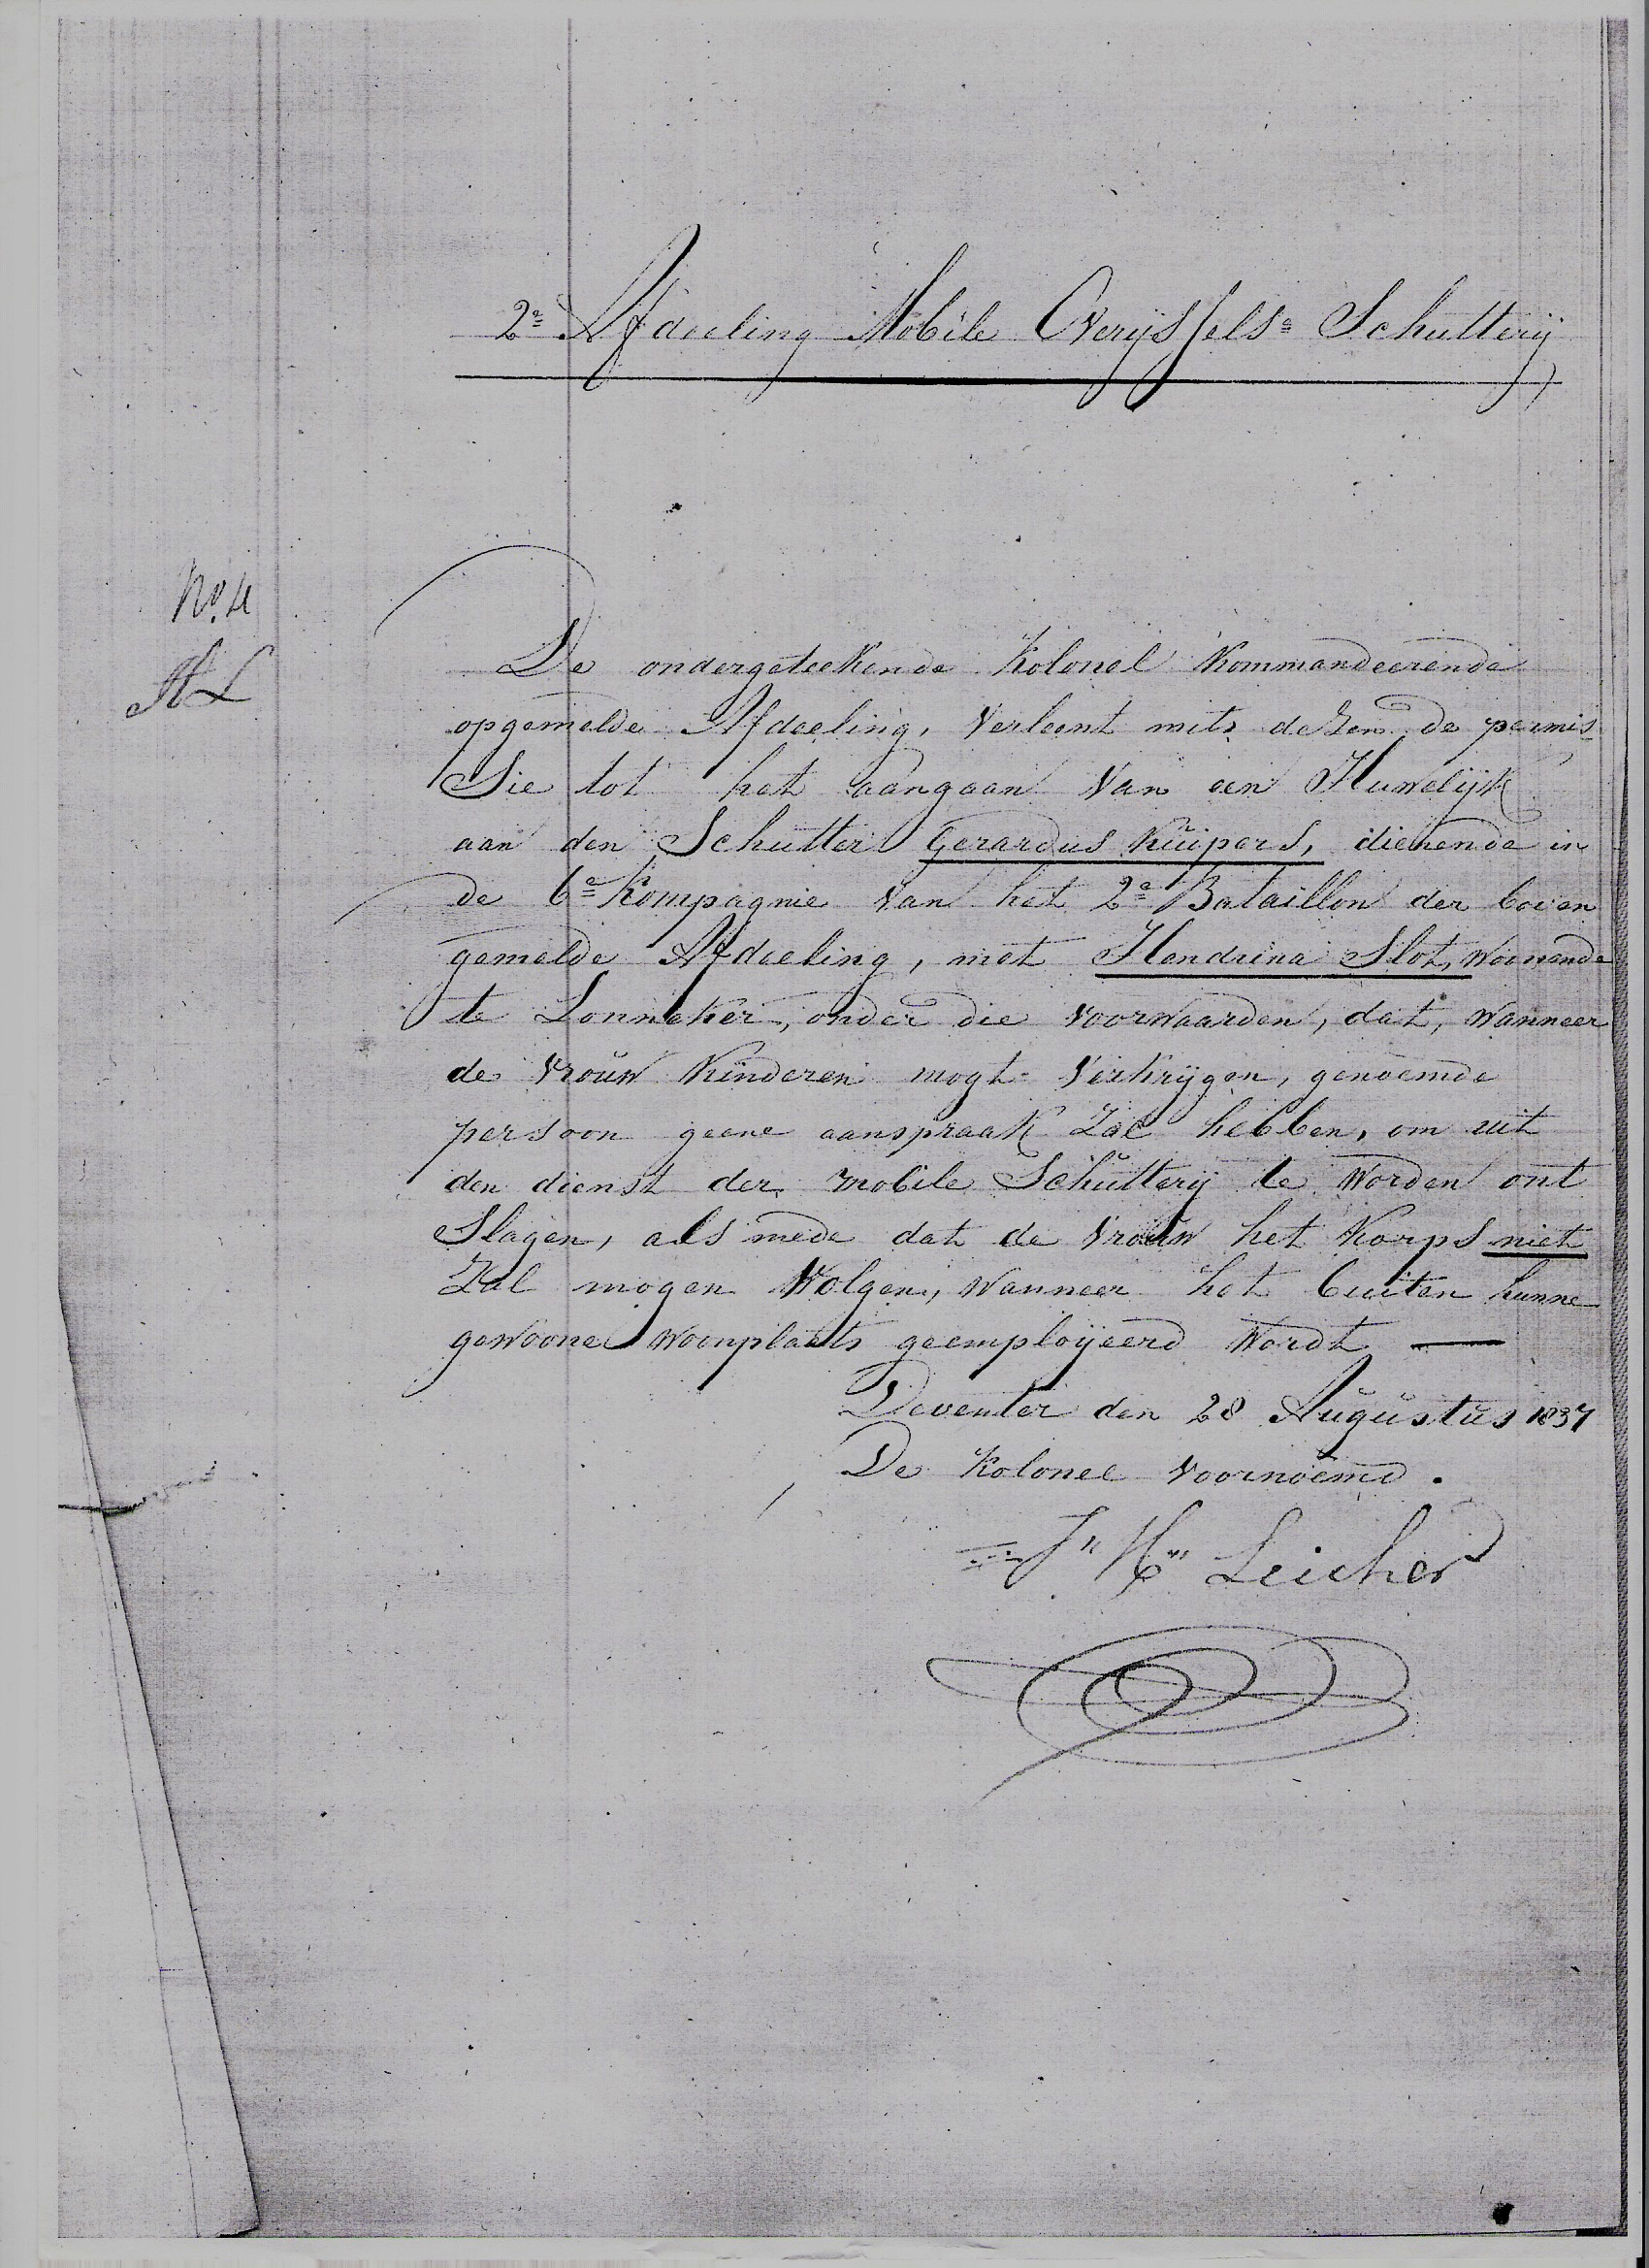 2e Afdeeling Mobile Overijsselse Schutterij
No. 4
AL
De ondergeteekende Kolonel Kommandeerende
opgemelde Afdeeling, Verleent mits dezen de permis
Sie tot het aangaan Van een Huwelijk
aan den Schutter Gerardus Kuipers, dienende in
de 6e Kompagnie Van het 2e Bataillon der boven
gemelde Afdeeling, met Hendrina Slot, Woonende
te Lonneker, onder die Voorwaarden, dat, Wanneer
de Vrouw Kinderen mogt Verkrijgen, genoemde
persoon geene aanspraak Zal hebben, om uit
den dienst der mobile Schutterij te Worden ont
Slagen, als mede dat de Vrouw het Korps niet
Zal mogen Volgen, Wanneer het buiten hunne
gewoone Woonplaats geemploijeerd Wordt —
Deventer den 28 Augustus 1837
De Kolonel Voornoemd.
Leicher